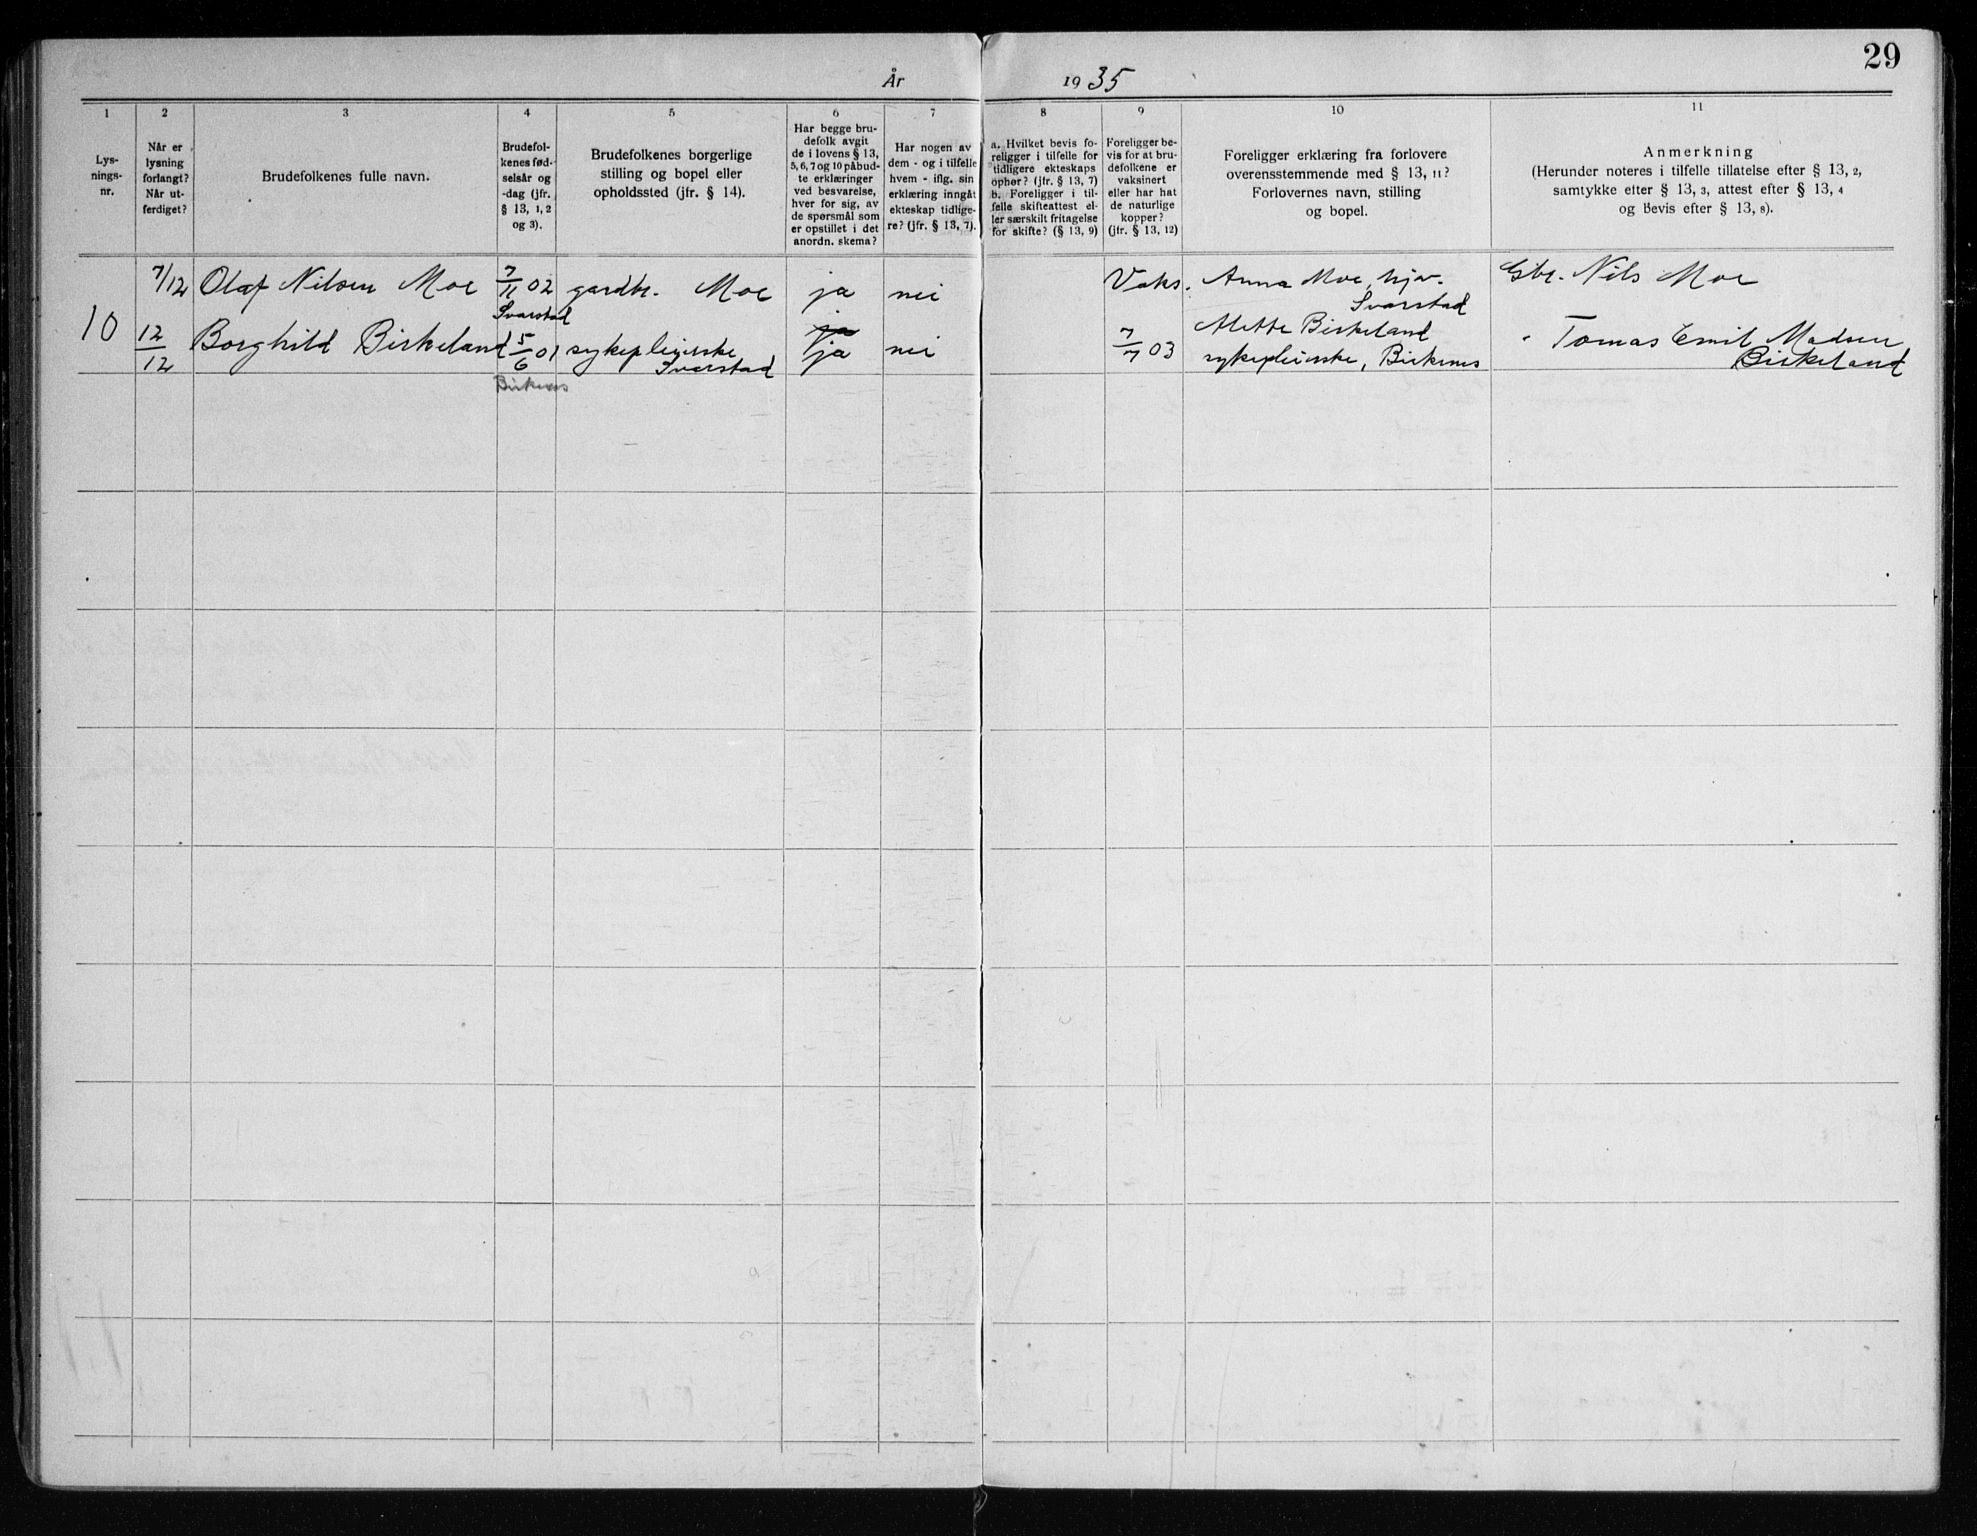 29
År 1935
1 2 3 4 5 6 7 8 9 10 11
Lys-
nings-
nr.
Når er
lysning
forlangt?
Når ut-
ferdiget?
Brudefolkenes fulle navn.
Brudefol-
kenes fød-
selsår og
-dag (jfr.
§ 13, 1, 2
og 3).
Brudefolkenes borgerlige
stilling og bopel eller
opholdssted (jfr. § 14).
Har begge bru-
defolk avgit
de i lovens § 13,
5, 6, 7 og 10 påbud-
te erklæringer
ved besvarelse,
hver for sig, av
de spørsmål som
er opstillet i det
anordn. skema?
Har nogen av
dem - og i tilfelle
hvem - iflg. sin
erklæring inngåt
ekteskap tidlige-
re? (jfr. § 13, 7).
a. Hvilket bevis fo-
religger i tilfelle for
tidligere ekteskaps
ophør? (jfr. § 13, 7)
b. Foreligger i til-
felle skifteattest el-
ler særskilt fritagelse
for skifte? (§ 13, 9)
Foreligger be-
vis for at bru-
defolkene er
vaksinert
eller har hat
de naturlige
kopper?
(jfr. § 13, 12)
Foreligger erklæring fra forlovere
overensstemmende med § 13, 11?
Forlovernes navn, stilling
og bopel.
Anmerkning
(Herunder noteres i tilfelle tillatelse efter § 13, 2,
samtykke efter § 13, 3, attest efter § 13, 4
og Bevis efter § 13, 8).
10
7/12 Olaf Nilsen Moe 7/11 02 gardbr. Moe ja nei Vaks. Anna Moe, hjv. Gbr. Nils Moe
Svarstad Svarstad
12/12 Borghild Birkeland 5/6 01 sykepleierske ja nei 7/7 03 Alette Birkeland " Tomas Emil Madsen
Svarstad ja sykepleierske, Birkenes Birkeland
Birkenes